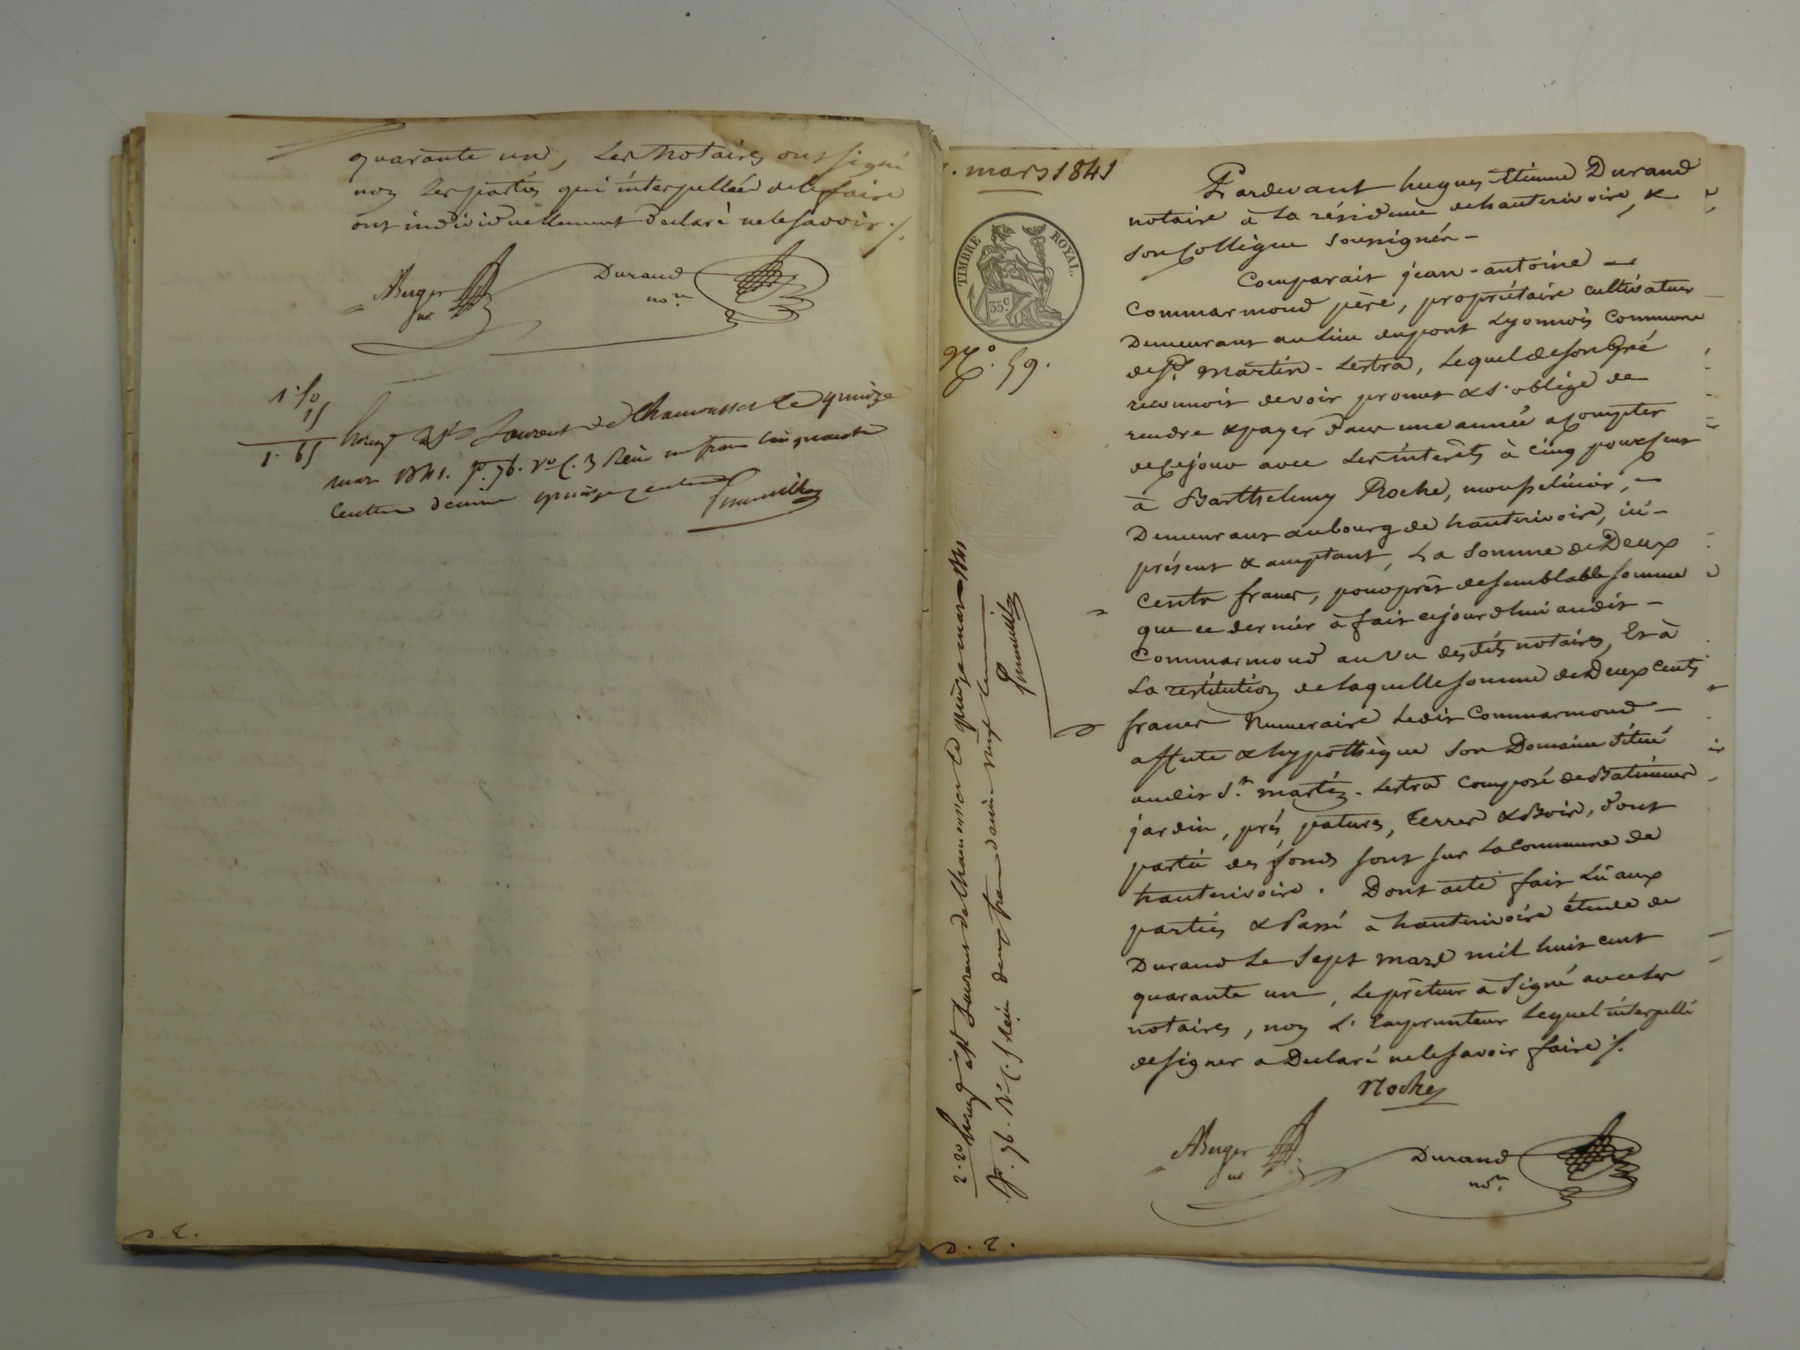 quarante un, Les notaires ont signé
non les parties qui interpellées de le faire
ont individuellement déclaré ne le savoir ./.
ABerger
nre
Durand
nore
1.50
15
1.65
Enregé à St Laurent de Chamousset le quinze
mars 1841. fo. 76. Vo c. 3 Reçu un franc cinquante
centimes décime quinze centimes
D. 2.
7. mars 1841
TIMBRE ROYAL.
35c
No. 59.
Pardevant hugues Etienne Durand
notaire à La résidence de hauterivoire, &
son Collègue soussignés -
Comparait jean-antoine -
Commarmond père, propriétaire cultivateur
Demeurant au lieu du pont Lyonnois Commune
de St. martin-Lestra, Lequel de son Gré
reconnoit devoir promet & s'oblige de
rendre & payer dans une année a Compter
de Ce jour avec Les intérêts à cinq pour Cent
à Barthelemy Roche,
Demeurant au bourg de hauterivoire, ici -
présent & acceptant, La Somme de Deux
Cents francs, pour prêt de semblable somme
que ce dernier à fait cejourdhui audit -
Commarmond au vu desdits notaires, Et à
La restitution de laquelle somme de Deux Cents
francs Numeraire Ledit Commarmond -
affecte & hypothèque son Domaine situé
audit St. martin-Lestra Composé de Batiments
jardin, prés, patures, Terres & Bois, dont
partie des fonds sont sur La Commune de
hauterivoire. Dont acte fait Lû aux
parties & Passé à hauterivoire étude de
Durand Le Sept mars mil huit cent
quarante un, Le prêteur à Signé avec Les
notaires, non L'Emprunteur Lequel interpellé
de signer a Déclaré ne le savoir faire ./.
Roche
ABerger
nre
Durand
nore
2.20 Enregé à St Laurent de Chamousset le quinze mars 1841
fo. 76. Vo c. 5 Reçu deux francs décime vingt centimes
D. 2.